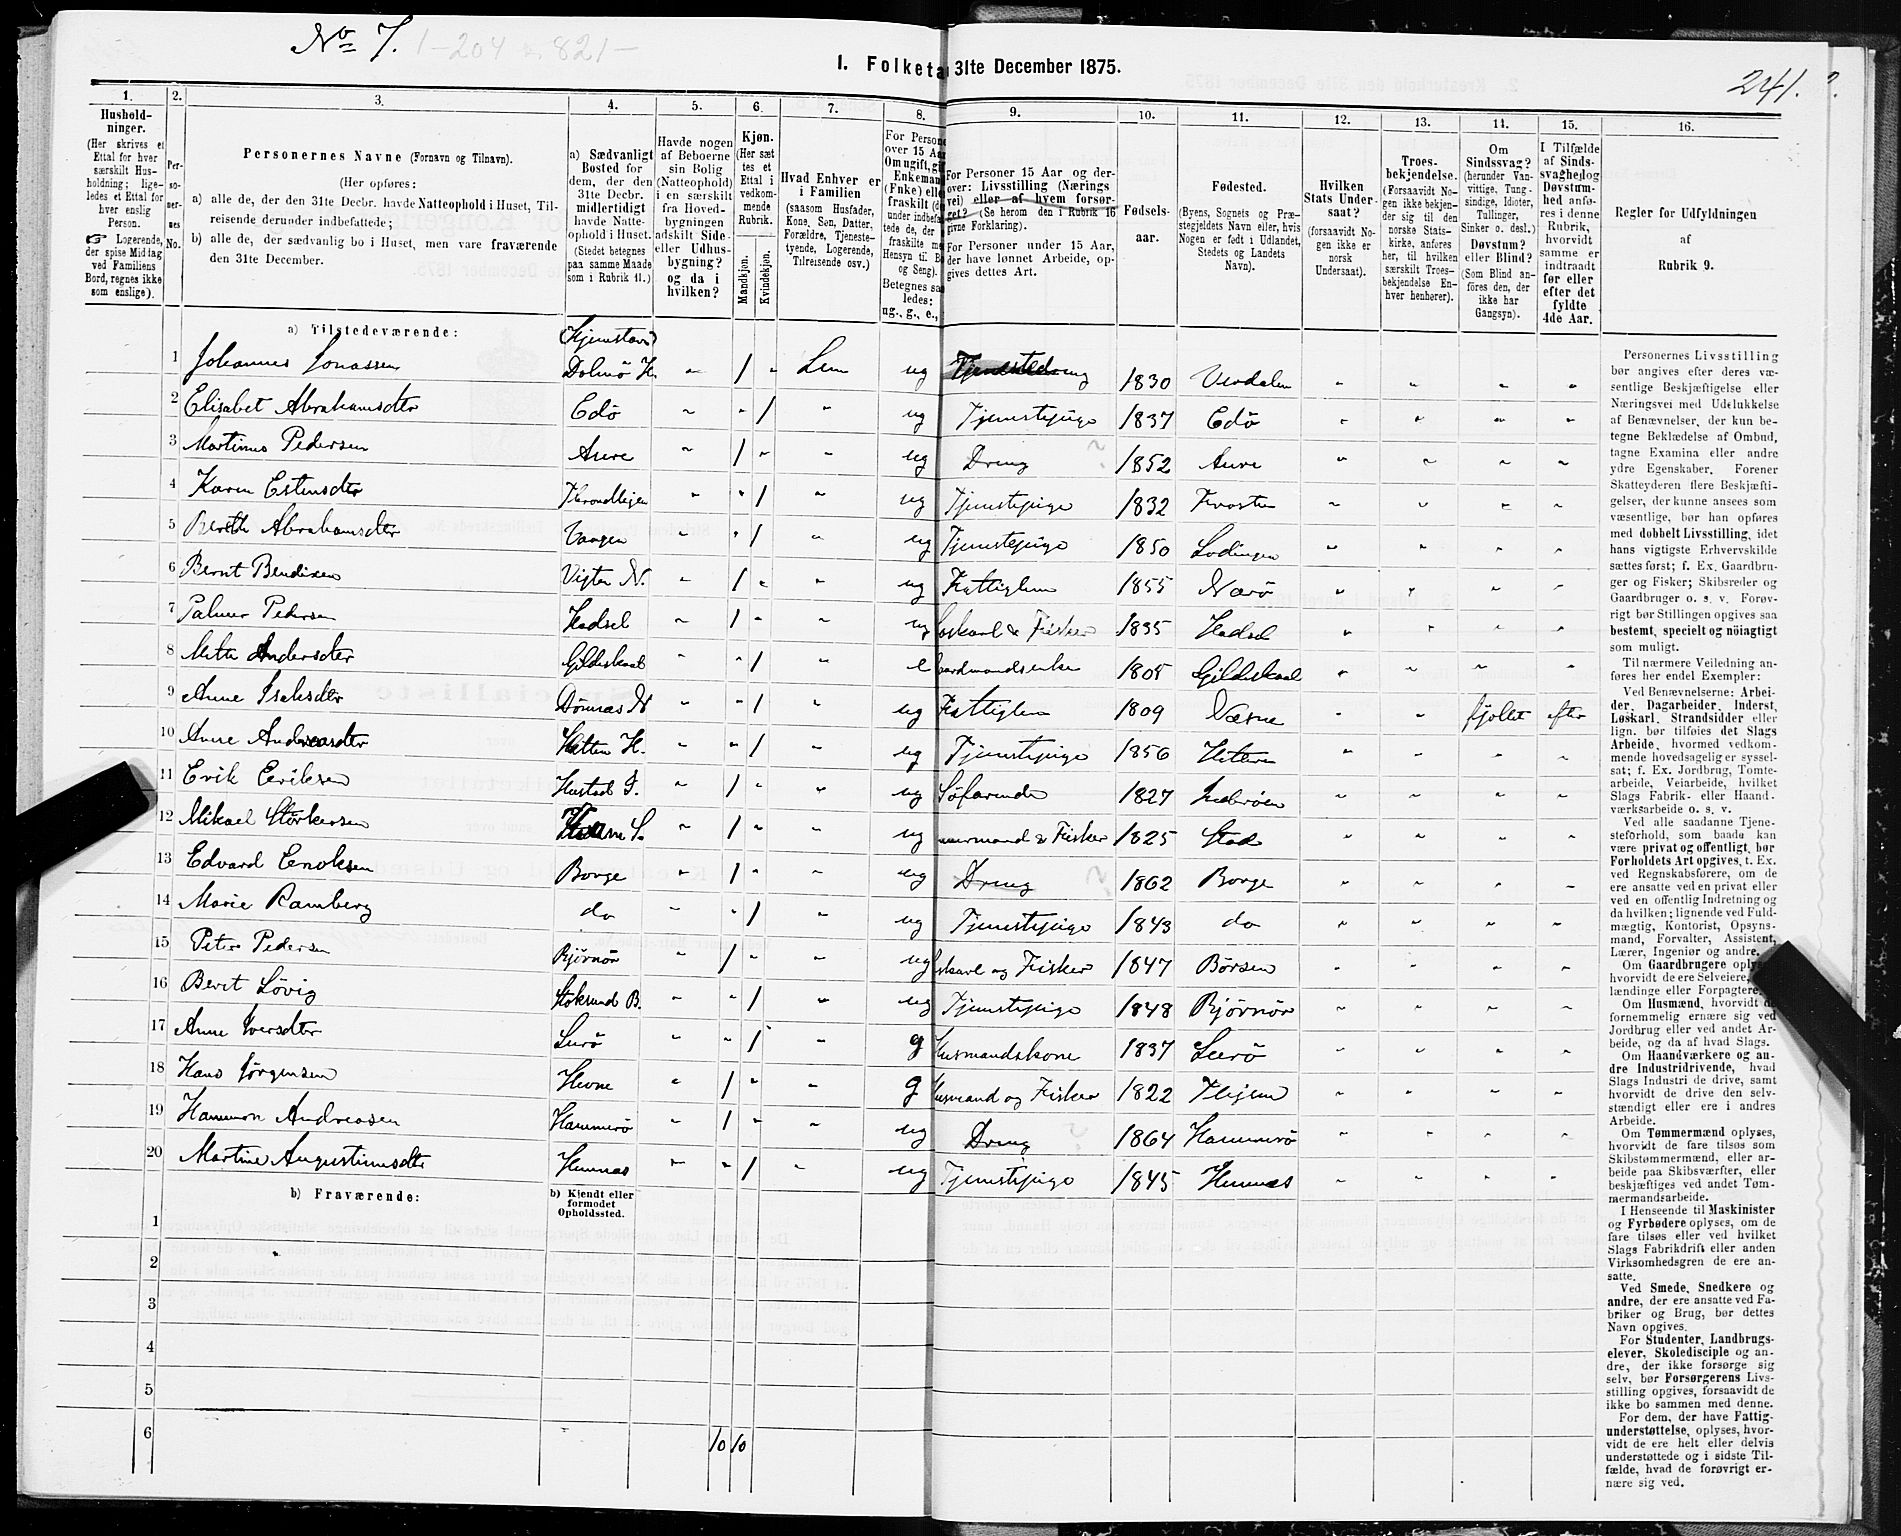 No 7. 1-204 821-
1. Folketa 31te December 1875.
241.
1. 2. 3. 4. 5. 6. 7. 8. 9. 10. 11. 12. 13. 14. 15. 16.
Hushold-
ninger.
(Her skrives et
Ettal for hver
særskilt Hus-
holdning; lige-
ledes et Ettal for
hver enslig
Person.
☞ Logerende,
der spise Middag
ved Familiens
Bord, regnes ikke
som enslige).
Per-
so-
ner-
nes
No.
Personernes Navne (Fornavn og Tilnavn).
(Her opføres:
a) alle de, der den 31te Decbr. havde Natteophold i Huset, Til-
reisende derunder indbefattede;
b) alle de, der sædvanlig bo i Huset, men vare fraværende
den 31te December.
a) Sædvanligt
Bosted for
dem, der den
31te Decbr.
midlertidigt
havde Natte-
ophold i Huset.
(Stedet betegnes
paa samme Maade
som i Rubrik 11.)
Havde nogen
af Beboerne
sin Bolig
(Natteophold)
i en særskilt
fra Hoved-
bygningen
adskilt Side-
eller Udhus-
bygning?
og da i
hvilken?
Kjøn.
(Her sæt
tes et
Ettal i
vedkom-
mende
Rubrik.
Mandkjøn.
Kvindekjøn.
Hvad Enhver er
i Familien
(saasom Husfader,
Kone, Søn, Datter,
Forældre, Tjeneste-
tyende, Logerende,
Tilreisende osv.)
For Persone
over 15 Aar
Om ugift, gif
Enkemand
(Fnke) elle
fraskilt (de
under indbefat
tede de, der
fraskilte me
Hensyn til Bo
og Seng).
Betegnes saa
ledes:
ug., g., e.,
For Personer 15 Aar og der-
over: Livsstilling (Nærings
vei) eller af hvem forsør-
get? (Se herom den i Rubrik 16
givne Forklaring).
For Personer under 15 Aar,
der have lønnet Arbeide, op-
gives dettes Art.
Fødsels-
aar.
Fødested.
(Byens, Sognets og Præ-
stegjeldets Navn eller, hvis
Nogen er født i Udlandet,
Stedets og Landets
Navn).
Hvilken
Stats Under-
saat?
(forsaavidt No-
gen ikke er
norsk
Undersaat).
Troes-
bekjendelse.
(Forsaavidt No-
gen ikke bekjen-
der sig til den
norske Stats-
kirke, anføres
her, til hvilken
særskilt Troes-
bekjendelse En-
hver henhører).
Om
Sindssvag?
(herunder Van-
vittige, Tung-
sindige, Idioter,
Tullinger,
Sinker o. desl.)
Døvstum?
eller Blind?
(Som Blind an-
føres den, der
ikke har
Gangsyn).
I Tilfælde
af Sinds-
svaghed og
Døvstum-
hed anfø-
res i denne
Rubrik,
hvorvidt
samme er
indtraadt
før eller
efter det
fyldte
4de Aar.
Regler for Udfyldningen
af
Rubrik 9.
a) Tilstedeværende: (Hjemstavn)
1 Johannes Jonassen Dolmö H. " 1 " Lem ug 1830 Verdalen " " " "
2 Elisabet Abrahamsdtr Edö " " 1 " ug Tjenstepige 1837 Edö " " " "
3 Martinus Pedersen Aure " 1 " " ug Dreng ? 1852 Aure " " " "
4 Karen Estensdtr Throndhjem " " 1 " ug Tjenstepige 1832 Frosten " " " "
5 Berith Abrahamsdtr Vaagen " " 1 " ug Tjenstepige 1850 Lodingen " " " "
6 Bernt Bendixen Vigten N. " 1 " " ug Fattiglem 1855 Nærö " " " "
7 Palmer Pedersen Hadsel " 1 " " ug Løskarl & Fisker 1835 Hadsel " " " "
8 Mette Andersdtr Gildeskaal " " 1 " e Gaardmandsenke 1805 Gildeskaal " " " "
9 Anne Isaksdtr Dönnæs N " " 1 " ug Fattiglem 1809 Næsne " " fjollet efter
10 Anne Andreasdtr Hitteren H. " " 1 " ug Tjenstepige 1856 Hitteren " " " "
11 Erik Eeriksen Hustad I. " 1 " " ug Söfarende 1827 Inderöen " " " "
12 Mikael Störkersen " 1 " " ug Fisker 1825 Stod " " " "
13 Edvard Enoksen Borge " 1 " " ug Dreng ? 1862 Borge " " " "
14 Marie Ramberg do " " 1 " ug Tjenstepige 1843 do " " " "
15 Peter Pedersen Bjørnör " 1 " " ug Løskarl og Fisker 1847 Børsen " " " "
16 Berit Lövig Stoksund B. " " 1 " ug Tjenstepige 1848 Bjørnör " " " "
17 Anne Iversdtr Lurö " " 1 " g Husmandskone 1837 Lurö " " " "
18 Hans Jörgensen Hevne " 1 " " g Husmand og Fisker 1822 " " " "
19 Hammon Andreasen Hammerö " 1 " " ug Dreng ? 1864 Hammerö " " " "
20 Martine Augustinusdtr Hemnæs " " 1 " ug Tjenstepige 1845 Hemnæs " " " "
b) Fraværende:
b) Kjendt eller
formodet
Opholdssted.
1
2
3
4
5
6
10 10
Personernes Livsstilling
bør angives efter deres væ-
sentlige Beskjæftigelse eller
Næringsvei med Udelukkelse
af Benævnelser, der kun be-
tegne Beklædelse af Ombud,
tagne Examina eller andre
ydre Egenskaber. Forener
Skatteyderen flere Beskjæfti-
gelser, der kunne ansees som
væsentlige, bør han opføres
med dobbelt Livsstilling, idet
hans vigtigste Erhvervskilde
sættes først; f. Ex. Gaardbru-
ger og Fisker; Skibsreder og
Gaardbruger o. s. v. Forøv-
rigt bør Stillingen opgives saa
bestemt, specielt og nöiagtigt
som muligt.
Til nærmere Veiledning an-
føres her endel Exempler:
Ved Benævnelserne: Arbei-
der, Dagarbeider, Inderst,
Løskarl, Strandsidder eller
lign. bør tilføies det Slags
Arbeide, hvormed vedkom-
mende hovedsagelig er syssel-
sat; f. Ex. Jordbrug, Tomte-
arbeide, Veiarbeide, hvilket
Slags Fabrik- eller Haand-
værksarbeide o. s. v.
Ved alle saadanne Tjene-
steforhold, som baade kan
være privat og offentligt, bør
Forholdets Art opgives, t. Ex.
ved Regnskabsførere, om de
ere ansatte ved en privat eller
ved en offentlig Indretning og
da hvilken; lignende ved Fuld-
mægtig, Kontorist, Opsyns-
mand, Forvalter, Assistent,
Lærer, Ingeniør og andre.
Om Gaardbrugere oplyses,
hvorvidt de ere Selveiere,
lændinge eller Forpagtere.
Om Husmænd, hvorvidt de
fornemmelig ernære sig ved
Jordbrug eller ved andet Ar-
beide, og da af hvad Slags.
Om Haandværkere og an-
dre Industridrivende, hvad
Slags Industri de drive, samt
hvorvidt de drive den selv-
stændigt eller ere i andres
Arbeide.
Om Tømmermænd oplyses,
hvorvidt de fare tilsøs som
Skibstømmermænd, eller ar-
beide paa Skibsværfter, eller
beskjæftiges ved andet Tøm-
mermandsarbeide.
I Henseende til Maskinister
og Fyrbødere oplyses, om de
fare tilsøs eller ved hvilket
Slags Fabrikdrift eller anden
Virksomhedsgren de ere an-
satte.
Ved Smede, Snedkere og
andre, der ere ansatte ved Fa-
briker og Brug, bør dettes
Navn opgives.
For Studenter, Landbrugs-
elever, Skoledisciple og an-
dre, der ikke forsørge sig
selv, bør Forsørgerens Livs-
stilling opgives, forsaavidt de
ikke bo sammen med denne.
For dem, der have Fattig-
understøttelse, oplyses, hvor-
vidt de ere helt eller delvis
understøttede og i sidste Til-
fælde, hvad de forøvrigt er-
nære sig ved.